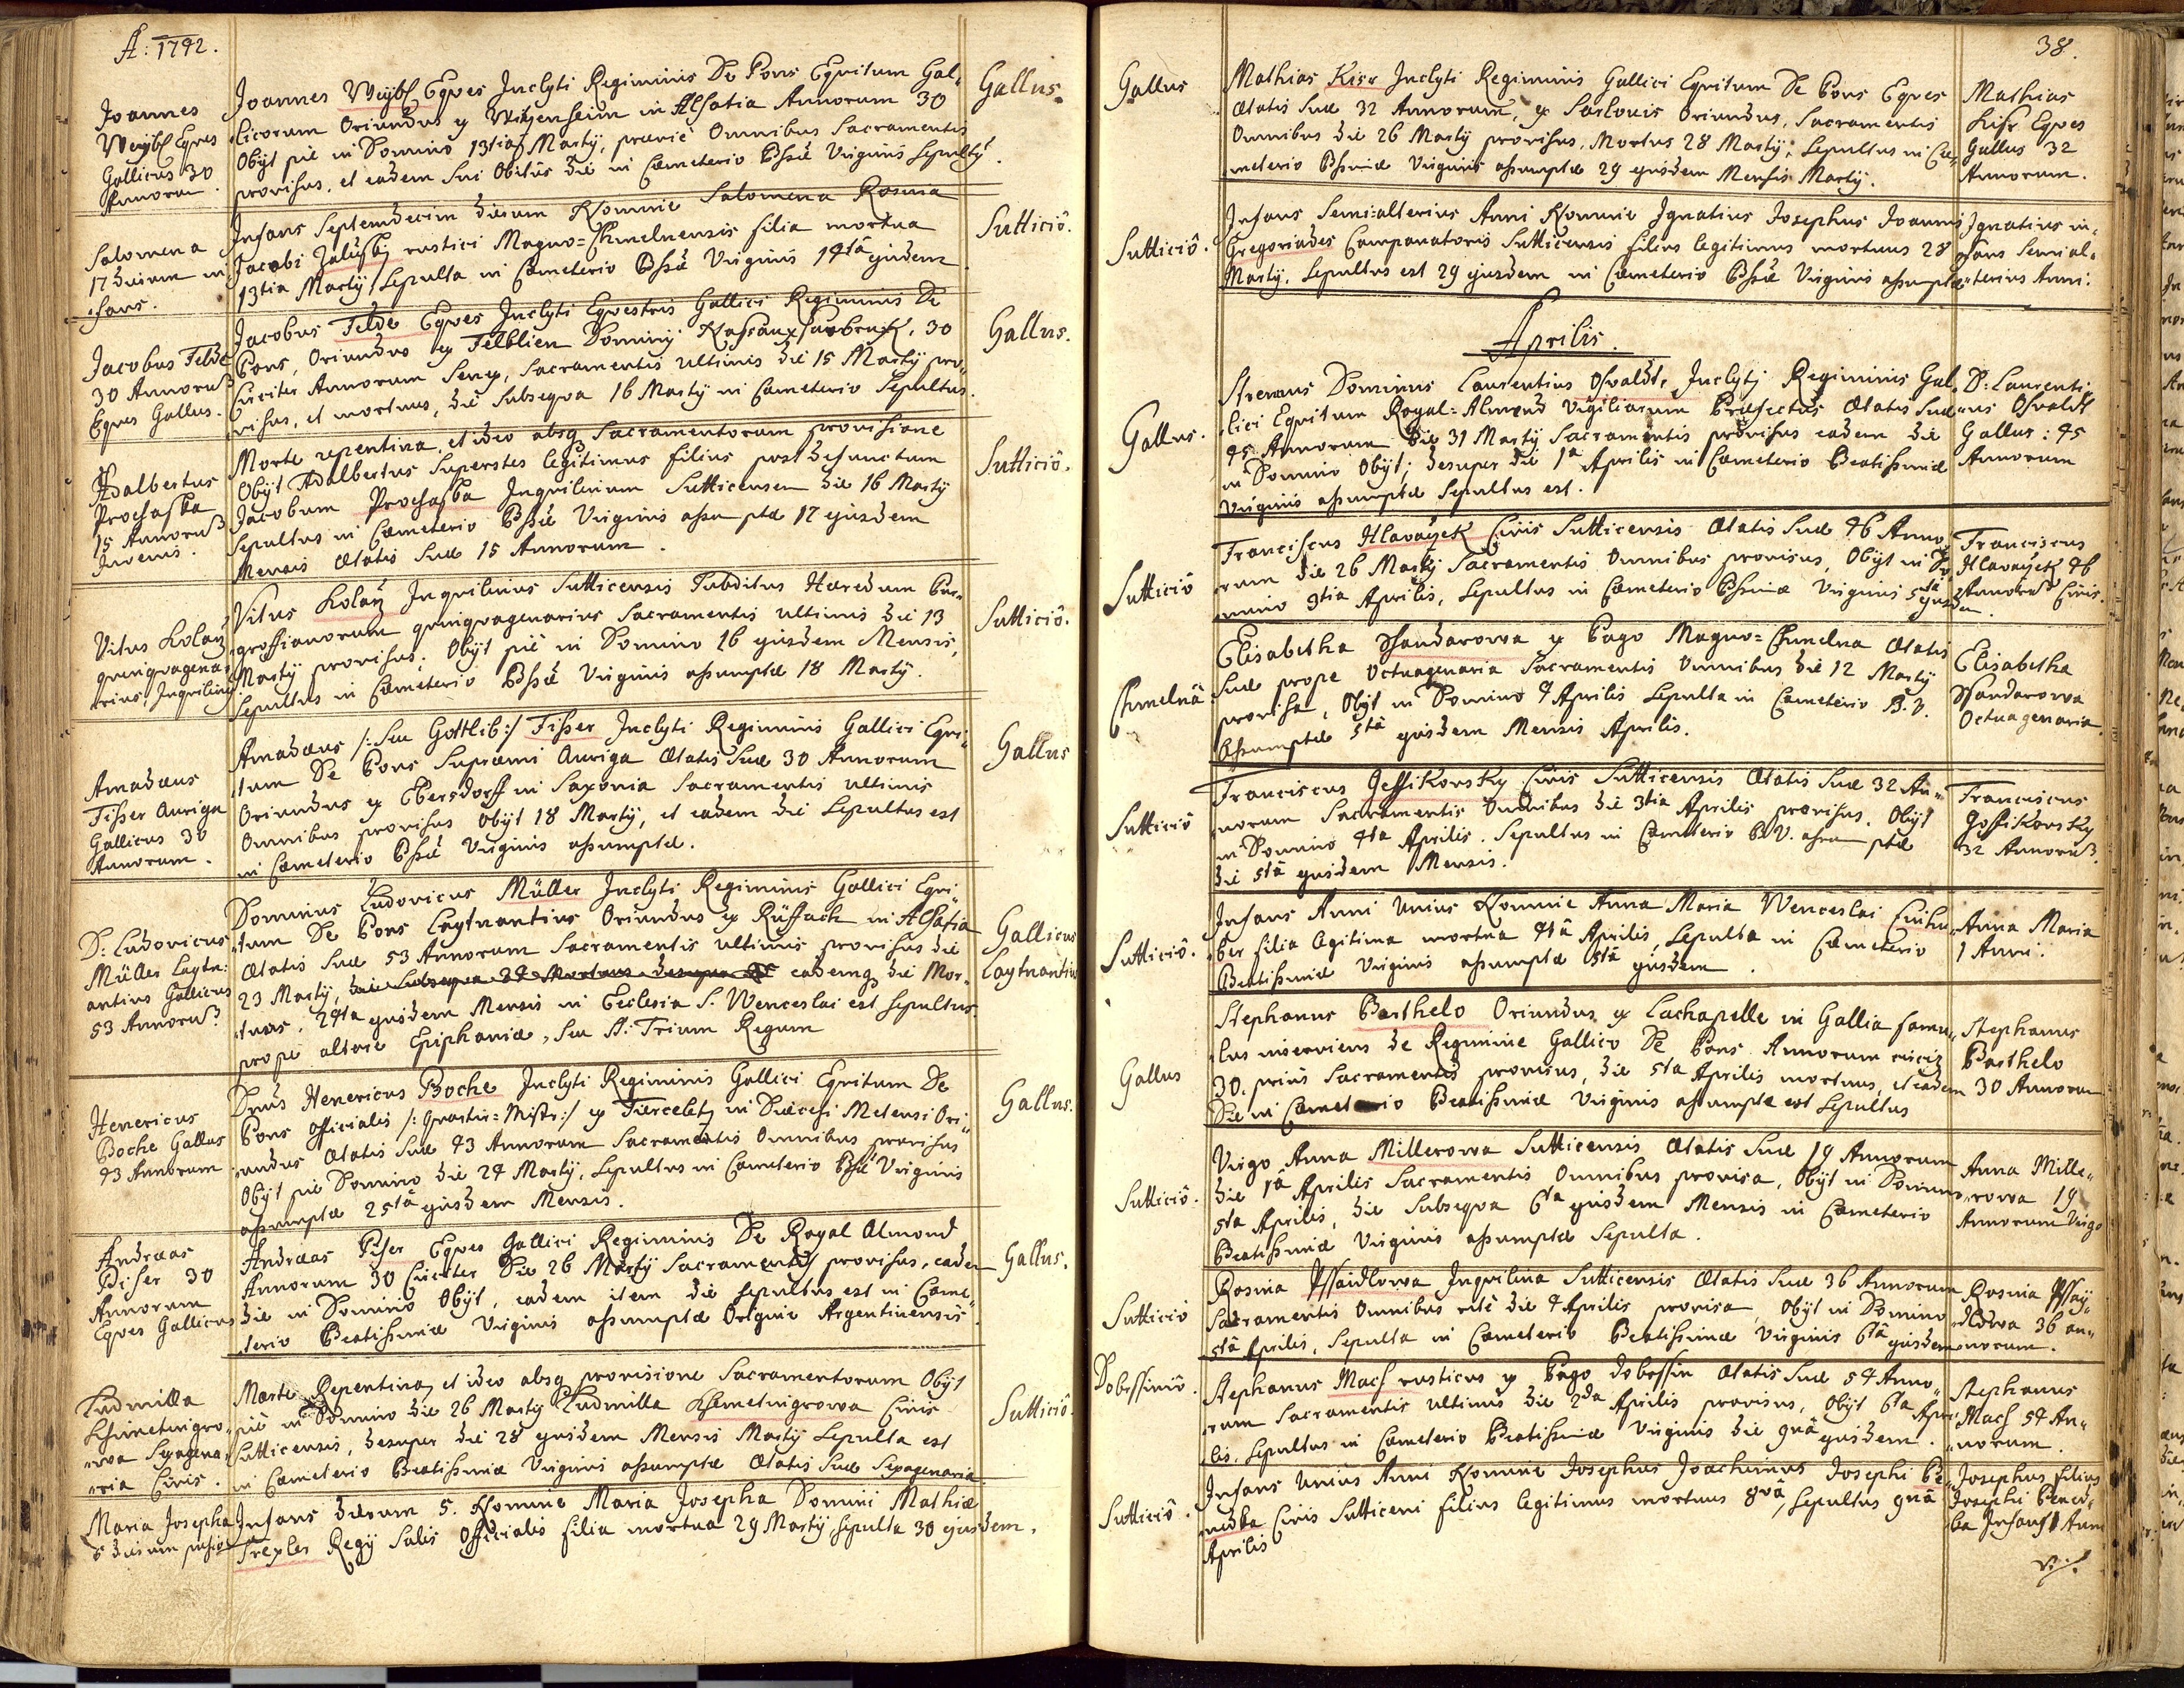 A: 1742.
Joannes
Weybl Eqves
Gallicus 30
Annorum.
Joannes Weybl Eqves Inclyti Regiminis De Pons Equitum Gal-
licorum Oriundus ex Witzenheim in Alsatia Annorum 30
Obijt pie in Domino 13tia Martij, praevie Omnibus Sacramentis
provisus, et eadem sui Obitûs die in Caemeterio Bssae Virginis Sepultus.
Gallus.
Salomena
17 dierum in-
fans.
Infans Septemdecim dierum Nomine Salomena Rosina
Jacobi Zalusky rustici Magno=Chmelnensis filia mortua
13tia Martij Sepulta in Caemeterio Bssae Virginis 14ta ejusdem
Sutticiô.
Jacobus Felde
30 Annorum
Eqves Gallus.
Jacobus Felde Eqves Inclyti Eqvestris Gallici Regiminis De
Pons, Oriundus ex Felblien Dominij Nassaux Saubruk, 30
Circiter Annorum Senex, Sacramentis ultimis die 15 Martij pro-
visus, et mortuus, die Subseqva 16 Martij in Caemeterio Sepultus.
Gallus.
Adalbertus
Prochaska
15 Annorum
Juvenis.
Morte repentina, et ideo absq Sacramentorum provisione
Obijt Adalbertus Superstes legitimus filius post defunctum
Jacobum Prochaska Inqvilinum Sutticensem die 16 Martij
Sepultus in Caemeterio Bssae Virginis assumptae 17 ejusdem
Mensis AEtatis Suae 15 Annorum.
Sutticiô.
Vitus Kolarz
qvinqvagena-
rius, Inqvilinus
Vitus Kolarz Inqvilinus Sutticensis Subditus Haeredum Pur-
grossianorum qvinqvagenarius Sacramentis ultimis die 13
Martij provisus; Obijt piè in Domino 16 ejusdem Mensis,
Sepultus in Caemeterio Bssae Virginis assumptae 18 Martij.
Sutticiô.
Amadaeus
Fisser Auriga
Gallicus 30
Annorum.
Amadaeus /: Seu Gottlib:/ Fisser Inclyti Regiminis Gallici Eqvi-
tum De Pons Supraemi Auriga AEtatis Suae 30 Annorum
Oriundus ex Ebersdorff in Saxonia Sacramentis ultimis
Omnibus provisus Obijt 18 Martij, et eadem die Sepultus est
in Caemeterio Bssae Virginis assumptae.
Gallus
D: Ludovicus
Müller Laytn-
antius Gallicus
53 Annorum
Dominus Ludovicus Müller Inclyti Regiminis Gallici Eqvi-
tum De Pons Laytnantius Oriundus ex Rüffach in Alsatia
AEtatis Suae 53 Annorum Sacramentis ultimis provisus die
23 Martij, eademq die Mor-
tuus. 24ta ejusdem Mensis in Ecclesia S. Wenceslai est Sepultus
prope altare Epiphaniae, Seu SS: Trium Regum
Gallicus
Laytnantius
Henericus
Boche Gallus
43 Annorum
Dnus Henericus Boche Inclyti Regiminis Gallici Eqvitum De
Pons officialis /: Qvartir=Mistr:/ ex Tiercelet in Diaecesi Metensi Ori-
undus AEtatis Suae 43 Annorum Sacramentis Omnibus provisus
Obijt pie Domino die 24 Martij, Sepultus in Caemeterio Bssae Virginis
assumptae 25ta ejusdem Mensis.
Gallus.
Andraeas
Piser 30
Annorum
Eqves Gallicus
Andraeas Piser Eqves Gallici Regiminis De Royal Almond
Annorum 30 Circiter Die 26 Martij Sacramentis provisus, eadem
die in Domino Obijt, eadem item die Sepultus est in Caeme-
terio Beatissimae Virginis assumptae Origine Argentinensis.
Gallus.
Ludmilla
Schmetingro-
wa Sexagena-
ria Civis.
Morte Repentina, et ideo absq provisione Sacramentorum Obijt
piè in Domino die 26 Martij Ludmilla Schmetingrowa Civis
Sutticensis, desuper die 28 ejusdem Mensis Martij Sepulta est
in Caemeterio Beatissimae Virginis assumptae AEtatis Suae Sexagenaria
Sutticiô.
Maria Josepha
5 dierum
Infans dierum 5. Nomine Maria Josepha Domini Mathiae
Trexler Regij Salis Officialis filia mortua 29 Martij Sepulta 30 ejusdem.
38.
Gallus
Mathias Kisr Inclyti Regiminis Gallici Eqvitum De Pons Eqves
AEtatis Suae 32 Annorum, ex Sarlouis Oriundus, Sacramentis
Omnibus die 26 Martij provisus, Mortus 28 Martij; Sepultus in Cae-
meterio Bssimae Virginis assumptae 29 ejusdem Mensis Martij.
Mathias
Kisr Eqves
Gallus 32
Annorum.
Sutticiô.
Infans Semi=alterius Anni Nomine Ignatius Josephus Joannis
Gregoriades Campanatoris Sutticensis filius legitimus mortuus 28
Martij, Sepultus est 29 ejusdem in Caemeterio Bssae Virginis assumptae
Ignatius in-
fans Semial-
terius Anni.
Aprilis.
Gallus.
Strenuus Dominus Laurentius Osvaldt, Inclytj Regiminis Gal-
lici Eqvitum Royal=Almand Vigiliarum Praefectus AEtatis Suae
45 Annorum Die 31 Martij Sacramentis provisus eadem die
in Domino Obijt; desuper die 1a Aprilis in Caemeterio Beatissimae
Virginis assumptae Sepultus est.
D: Laurenti-
us Osvaldt
Gallus: 45
Annorum
Sutticiô
Franciscus Hlavaczek Civis Sutticensis AEtatis Suae 46 Anno-
rum die 26 Martij Sacramentis Omnibus provisus, Obijt in Do-
mino 3tia Aprilis, Sepultus in Caemeterio Bssimae Virginis 5ta ejusdem
Franciscus
Hlavaczek 46
Annorum Civis.
Chmelnâ
Elisabetha Ssandarowa ex Pago Magno=Chmelna AEtatis
Suae prope Octuagenaria Sacramentis Omnibus die 12 Martij
provisa, Obijt in Domino 4 Aprilis Sepulta in Caemeterio B. V.
Assumptae 5ta ejusdem Mensis Aprilis.
Elisabetha
Ssandarowa
Octuagenaria.
Sutticiô
Franciscus Jessikovsky Civis Sutticensis AEtatis Suae 32 An-
norum Sacramentis Omnibus die 3tia Aprilis provisus, Obijt
in Domino 4ta Aprilis. Sepultus in Caemeterio B.V. assumptae
die 5ta ejusdem Mensis.
Franciscus
Jessikovsky
32 Annorum.
Sutticiô.
Infans Anni Unius Nomine Anna Maria Wenceslai
ber filia legitima mortua 4ta Aprilis, Sepulta in Caemeterio
Beatissimae Virginis assumptae 5ta ejusdem.
Anna Maria
1 Anni.
Gallus
Stephanus Barthelo Oriundus ex Lachapelle in Gallia famu-
lus inserviens de Regimine Gallico De Pons Annorum circiter
30. prius Sacramentis provisus, die 5ta Aprilis mortuus, et eadem
Die in Caemeterio Beatissimae Virginis assumptae est Sepultus
Stephanus
Barthelo
30 Annorum
Sutticiô.
Virgo Anna Millerowa Sutticensis AEtatis Suae 19 Annorum
die 1a Aprilis Sacramentis Omnibus provisa, Obijt in Domino
5ta Aprilis, die Subseqva 6ta ejusdem Mensis in Caemeterio
Beatissimae Virginis assumptae Sepulta.
Anna Mille-
rowa 19
Annorum Virgo
Sutticiô
Rosina Pssaidlowa Inqvilina Sutticensis AEtatis Suae 36 Annorum
Sacramentis Omnibus ritè die 4 Aprilis provisa, Obijt in Domino
5ta Aprilis, Sepulta in Caemeterio Beatissimae Virginis 6ta ejusdem
Rosina Pssay-
dlowa 36 an-
norum.
Dobessiniô.
Stephanus Mach rusticus ex Pago Dobessin AEtatis Suae 54 Anno-
rum Sacramentis ultimis die 2da Aprilis provisus, Obijt 6ta Apri-
lis, Sepultus in Caemeterio Beatissimae Virginis die 9nâ ejusdem.
Stephanus
Mach 54 An-
norum.
Sutticiô.
Infans Unius Anni Nomine Josephus Joachimus Josephi Be
nedba Civis Sutticeni filius legitimus mortuus 8vâ, Sepultus 9nâ
Aprilis
Josephus filius
Josephi Bened-
ba Infans 1 Anni